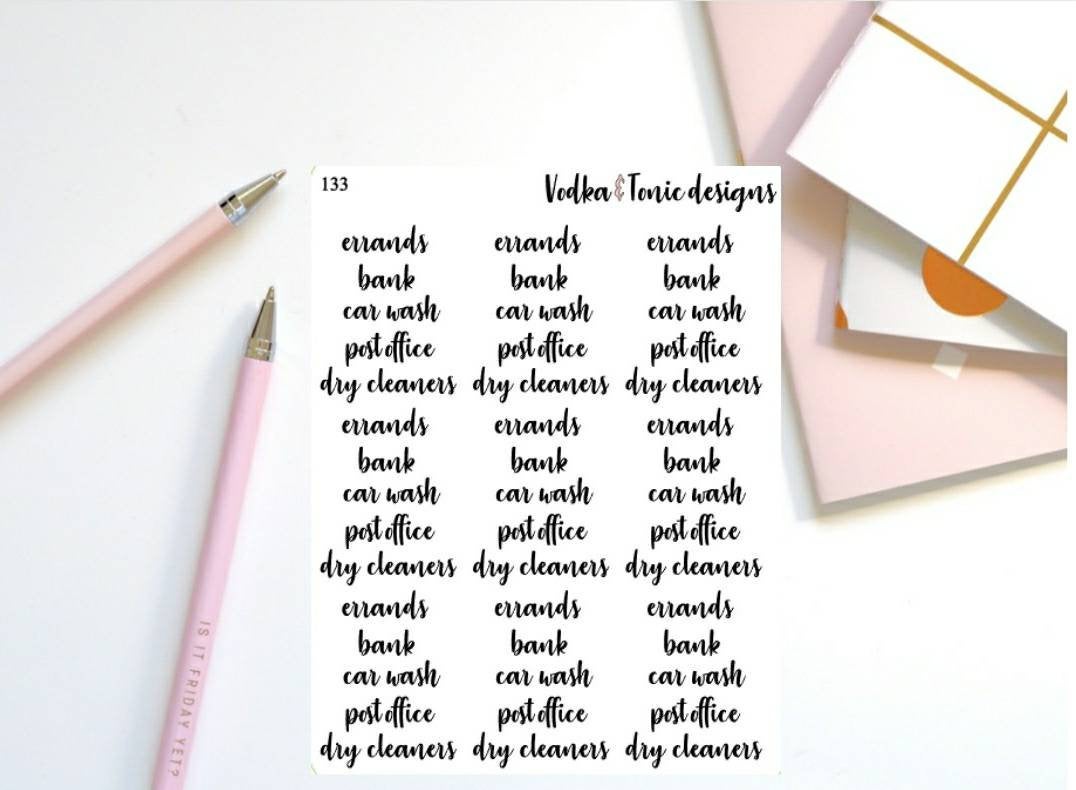 133
Vodka & Tonic designs
errands errands errands
bank bank bank
car wash car wash car wash
post office post office post office
dry cleaners dry cleaners dry cleaners
errands errands errands
bank bank bank
car wash car wash car wash
post office post office post office
dry cleaners dry cleaners dry cleaners
errands errands errands
bank bank bank
car wash car wash car wash
post office post office post office
dry cleaners dry cleaners dry cleaners
IS IT FRIDAY YET?